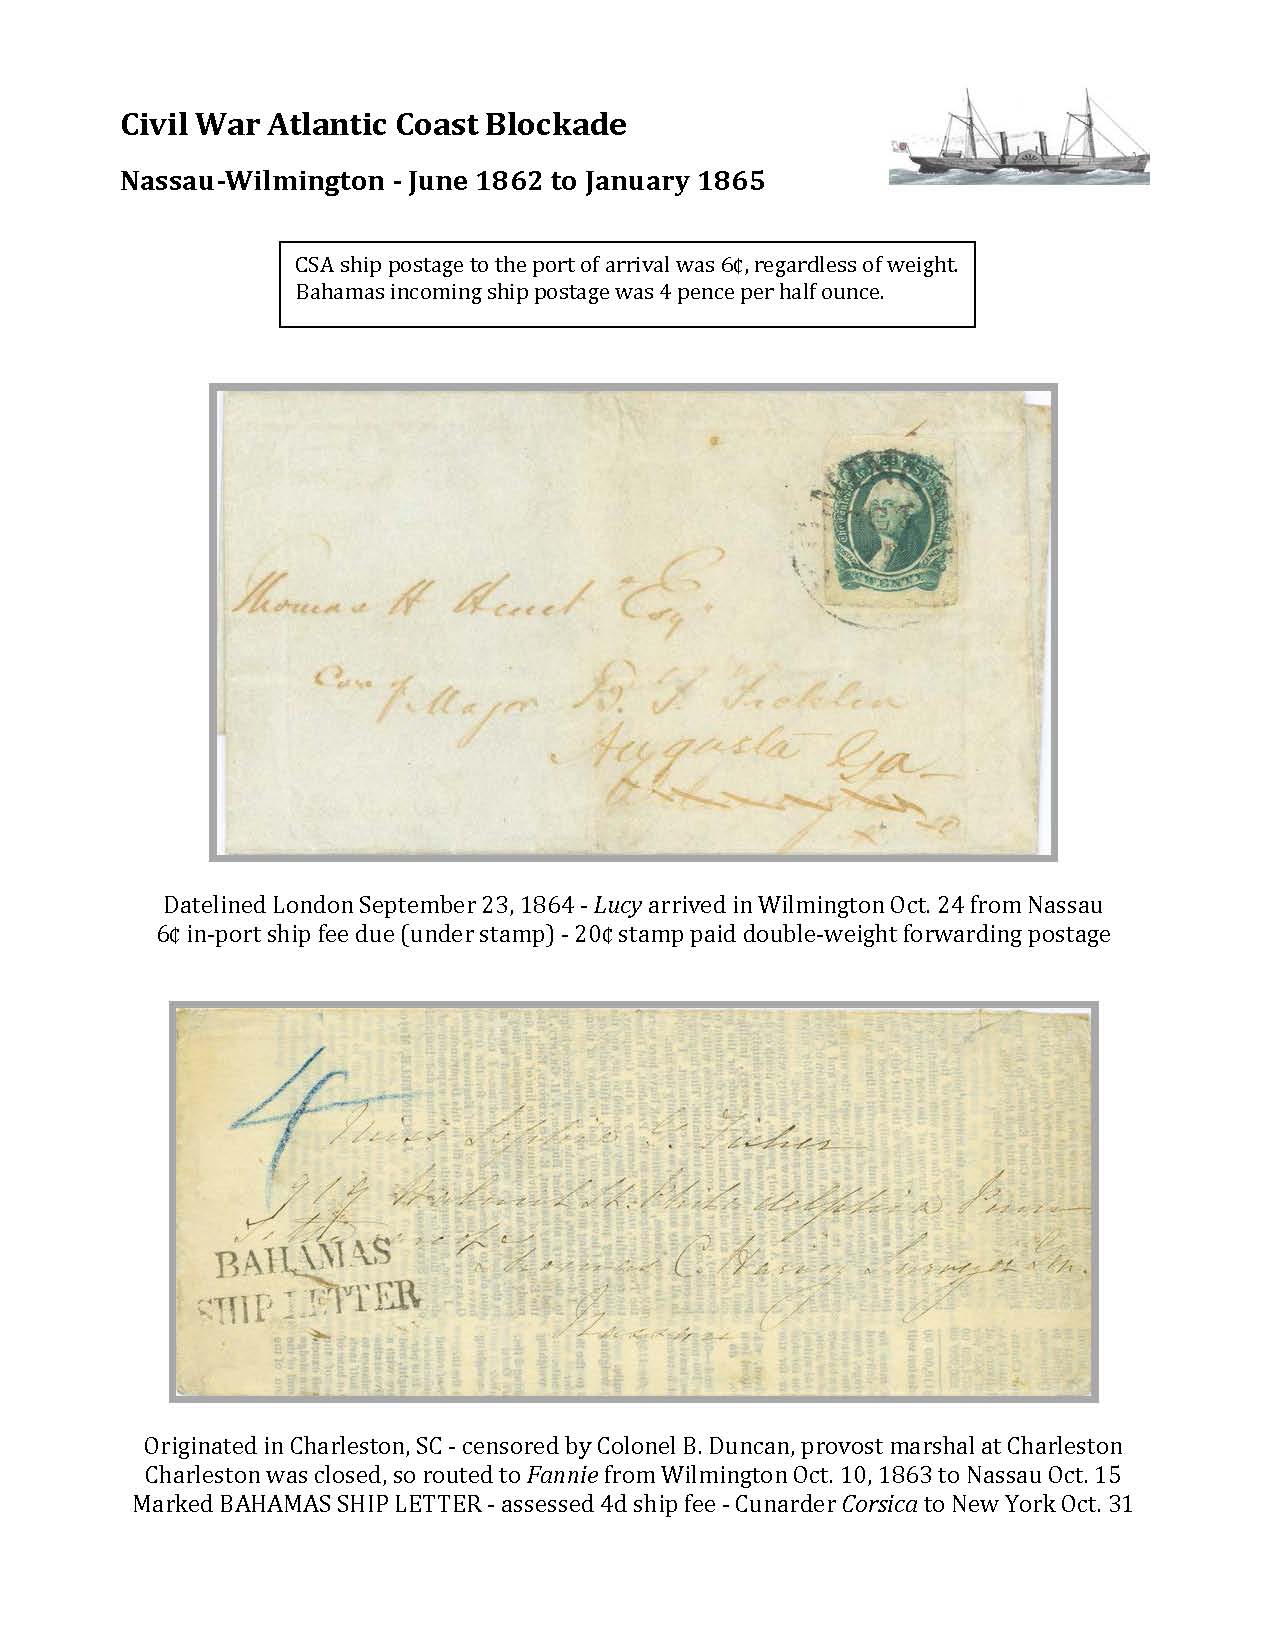 Civil War Atlantic Coast Blockade
Nassau-Wilmington - June 1862 to January 1865
CSA ship postage to the port of arrival was 6¢, regardless of weight.
Bahamas incoming ship postage was 4 pence per half ounce.
TWENTY
Thomas H Hunt Esq
Care of Major B. F. Ficklin
Augusta Ga
Datelined London September 23, 1864 - Lucy arrived in Wilmington Oct. 24 from Nassau
6¢ in-port ship fee due (under stamp) - 20¢ stamp paid double-weight forwarding postage
4
Miss Sophie G. Fisher
919 Walnut St. Philadelphia Penn
Thomas C. Harvey Surveyor Gen.
Nassau
BAHAMAS
SHIP LETTER
Originated in Charleston, SC - censored by Colonel B. Duncan, provost marshal at Charleston
Charleston was closed, so routed to Fannie from Wilmington Oct. 10, 1863 to Nassau Oct. 15
Marked BAHAMAS SHIP LETTER - assessed 4d ship fee - Cunarder Corsica to New York Oct. 31